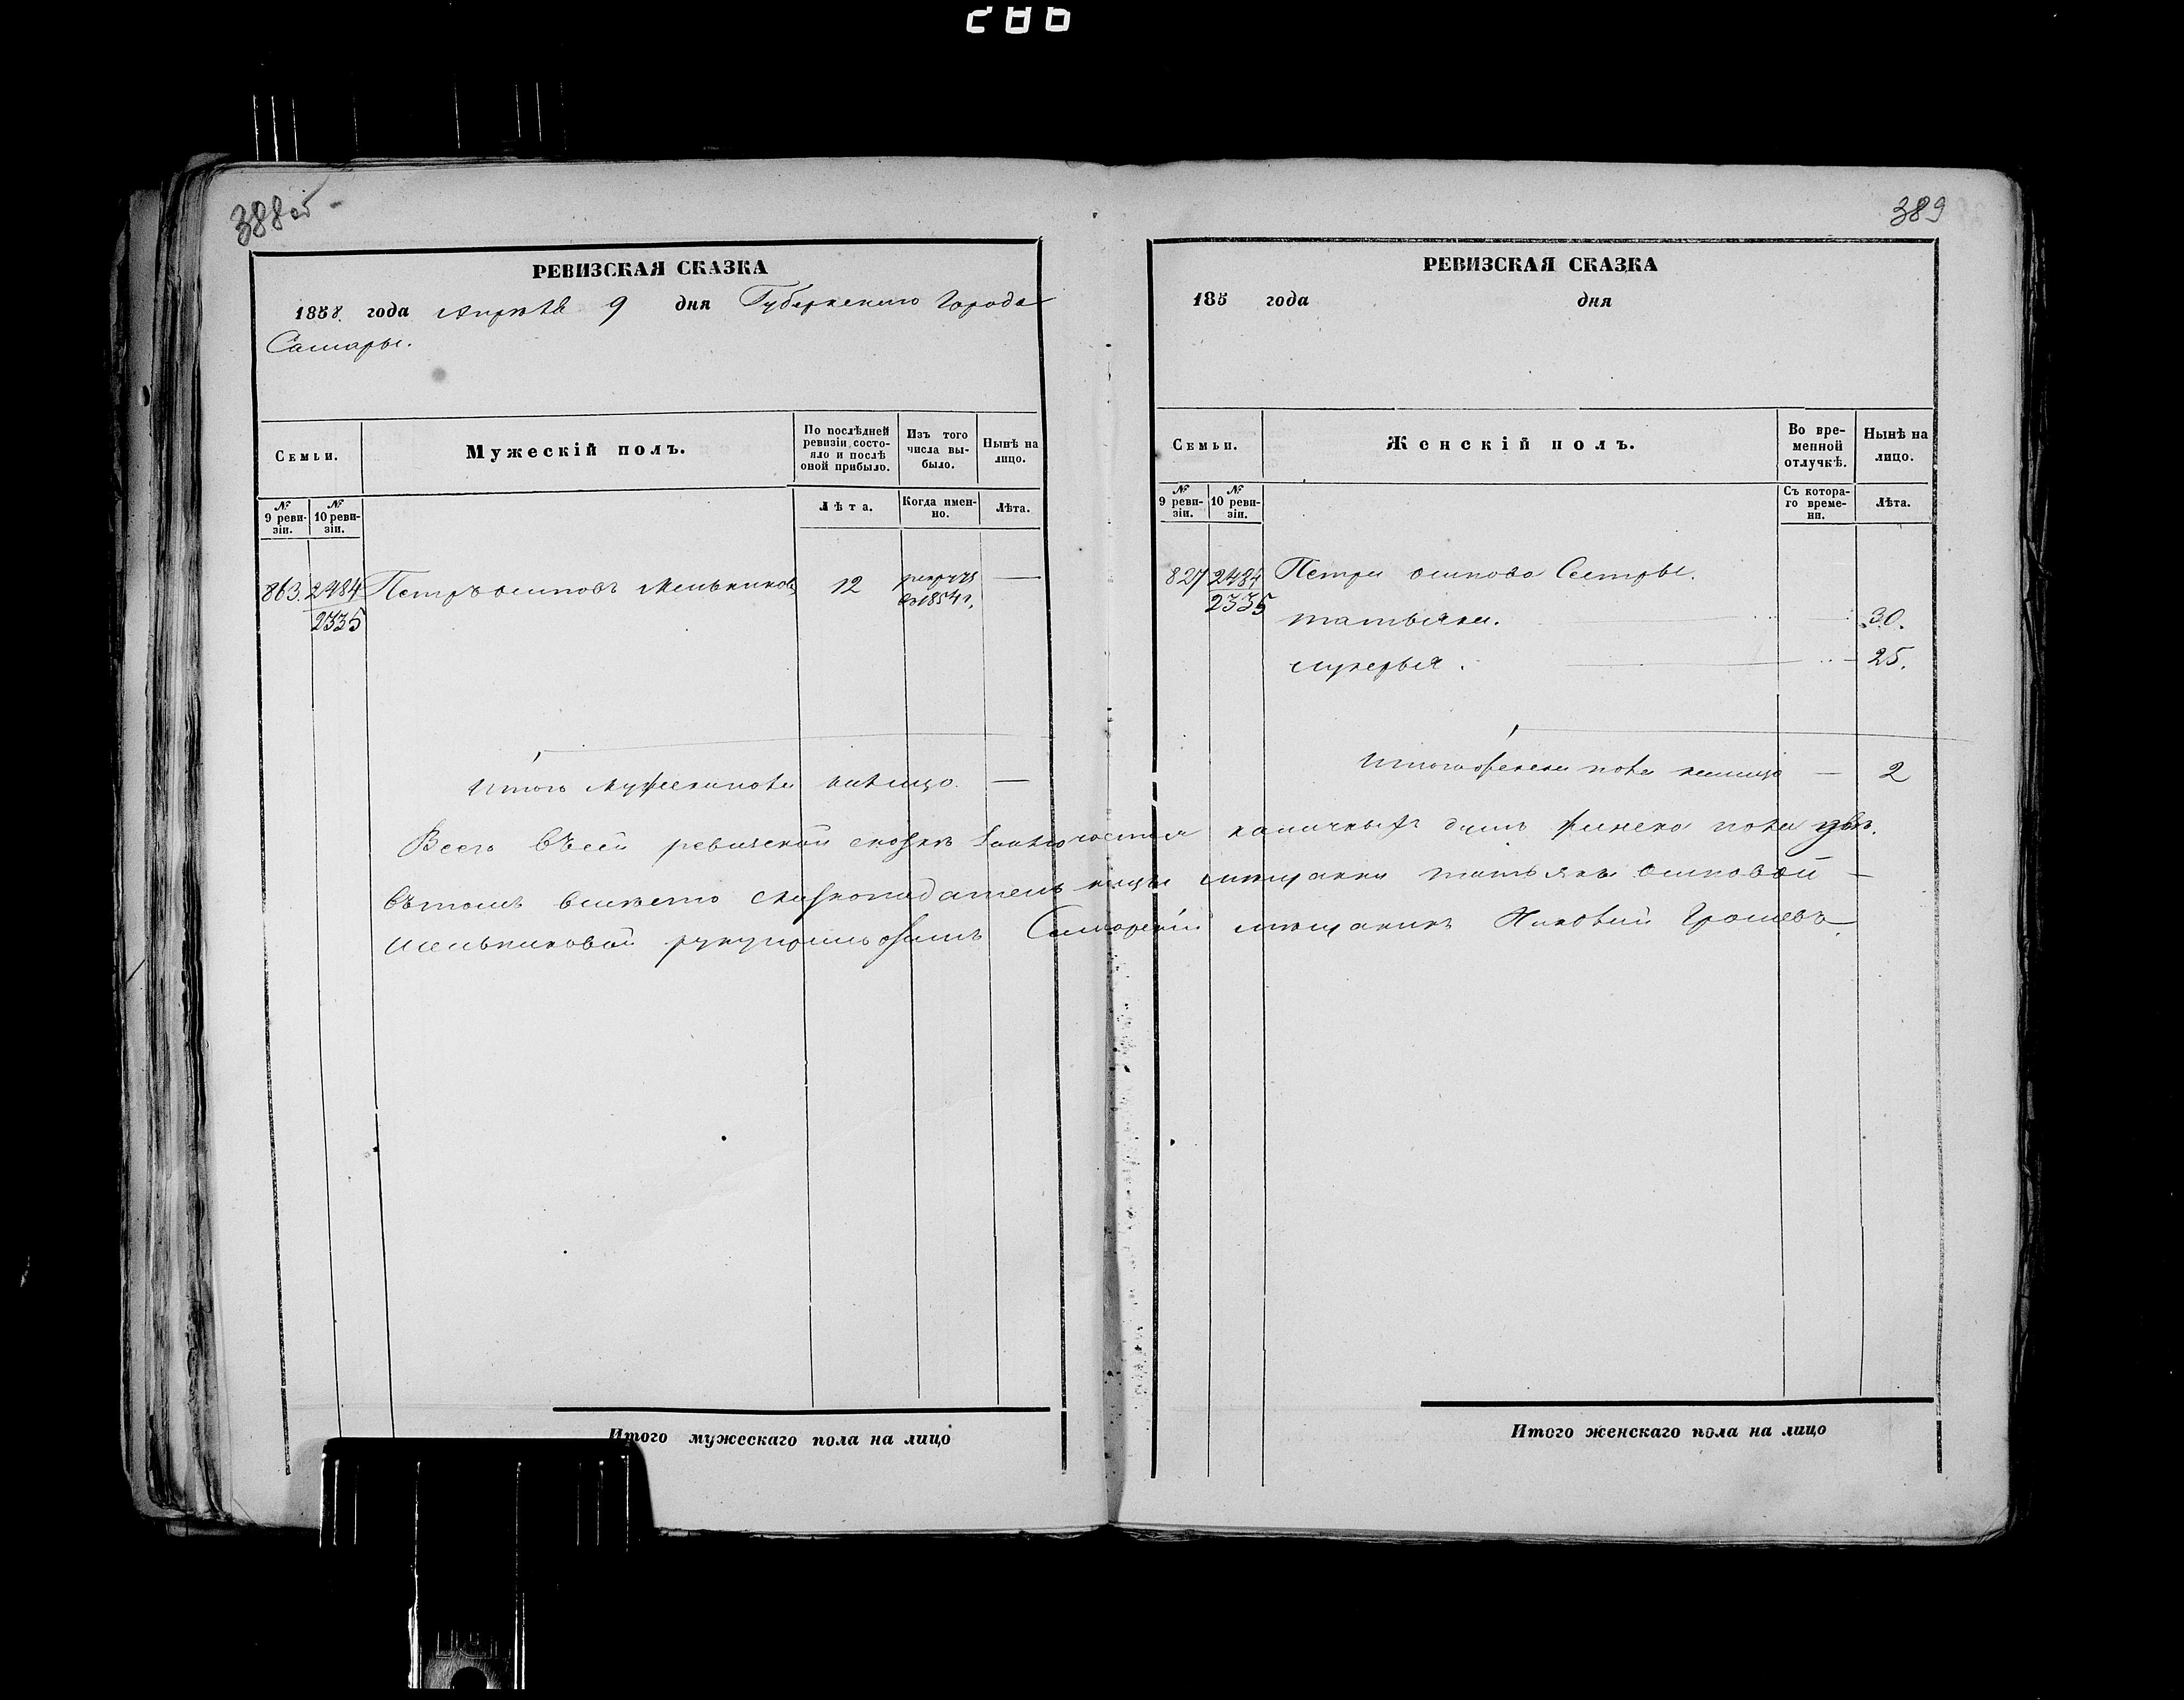 286
388 об
РЕВИЗСКАЯ СКАЗКА
1858 года Апреля 9 дня Губернского Города
Самары.
Семьи.
Мужескій полъ.
По послѣдней ревизіи состояло и послѣ оной прибыло.
Изъ того числа выбыло.
Нынѣ на лицо.
№ 9 ревизіи.
№ 10 ревизіи.
Лѣта.
Когда именно.
Лѣта.
863. 2484 Петръ осиповъ Мельниковъ 12 рекрутъ —
2335 въ 1854 г.
Итого Мужеска пола налицо. —
389
РЕВИЗСКАЯ СКАЗКА
185 года дня
Семьи.
Женскій полъ.
Во временной отлучкѣ.
Нынѣ на лицо.
№ 9 ревизіи.
№ 10 ревизіи.
Съ котораго времени.
Лѣта.
827 2484 Петра осипова Сестры.
2335
татьяна. 30.
лукерья. 25.
Итого женска пола налицо — 2
Всего въ сей ревизской сказке заключается наличныхъ душъ женска пола двѣ.
Въ томъ вместо сказкоподательницы мещанки татьяны осиповой —
Мельниковой руку приложилъ Самарскій мещанинъ Грошевъ.
Итого мужескаго пола на лицо
Итого женскаго пола на лицо